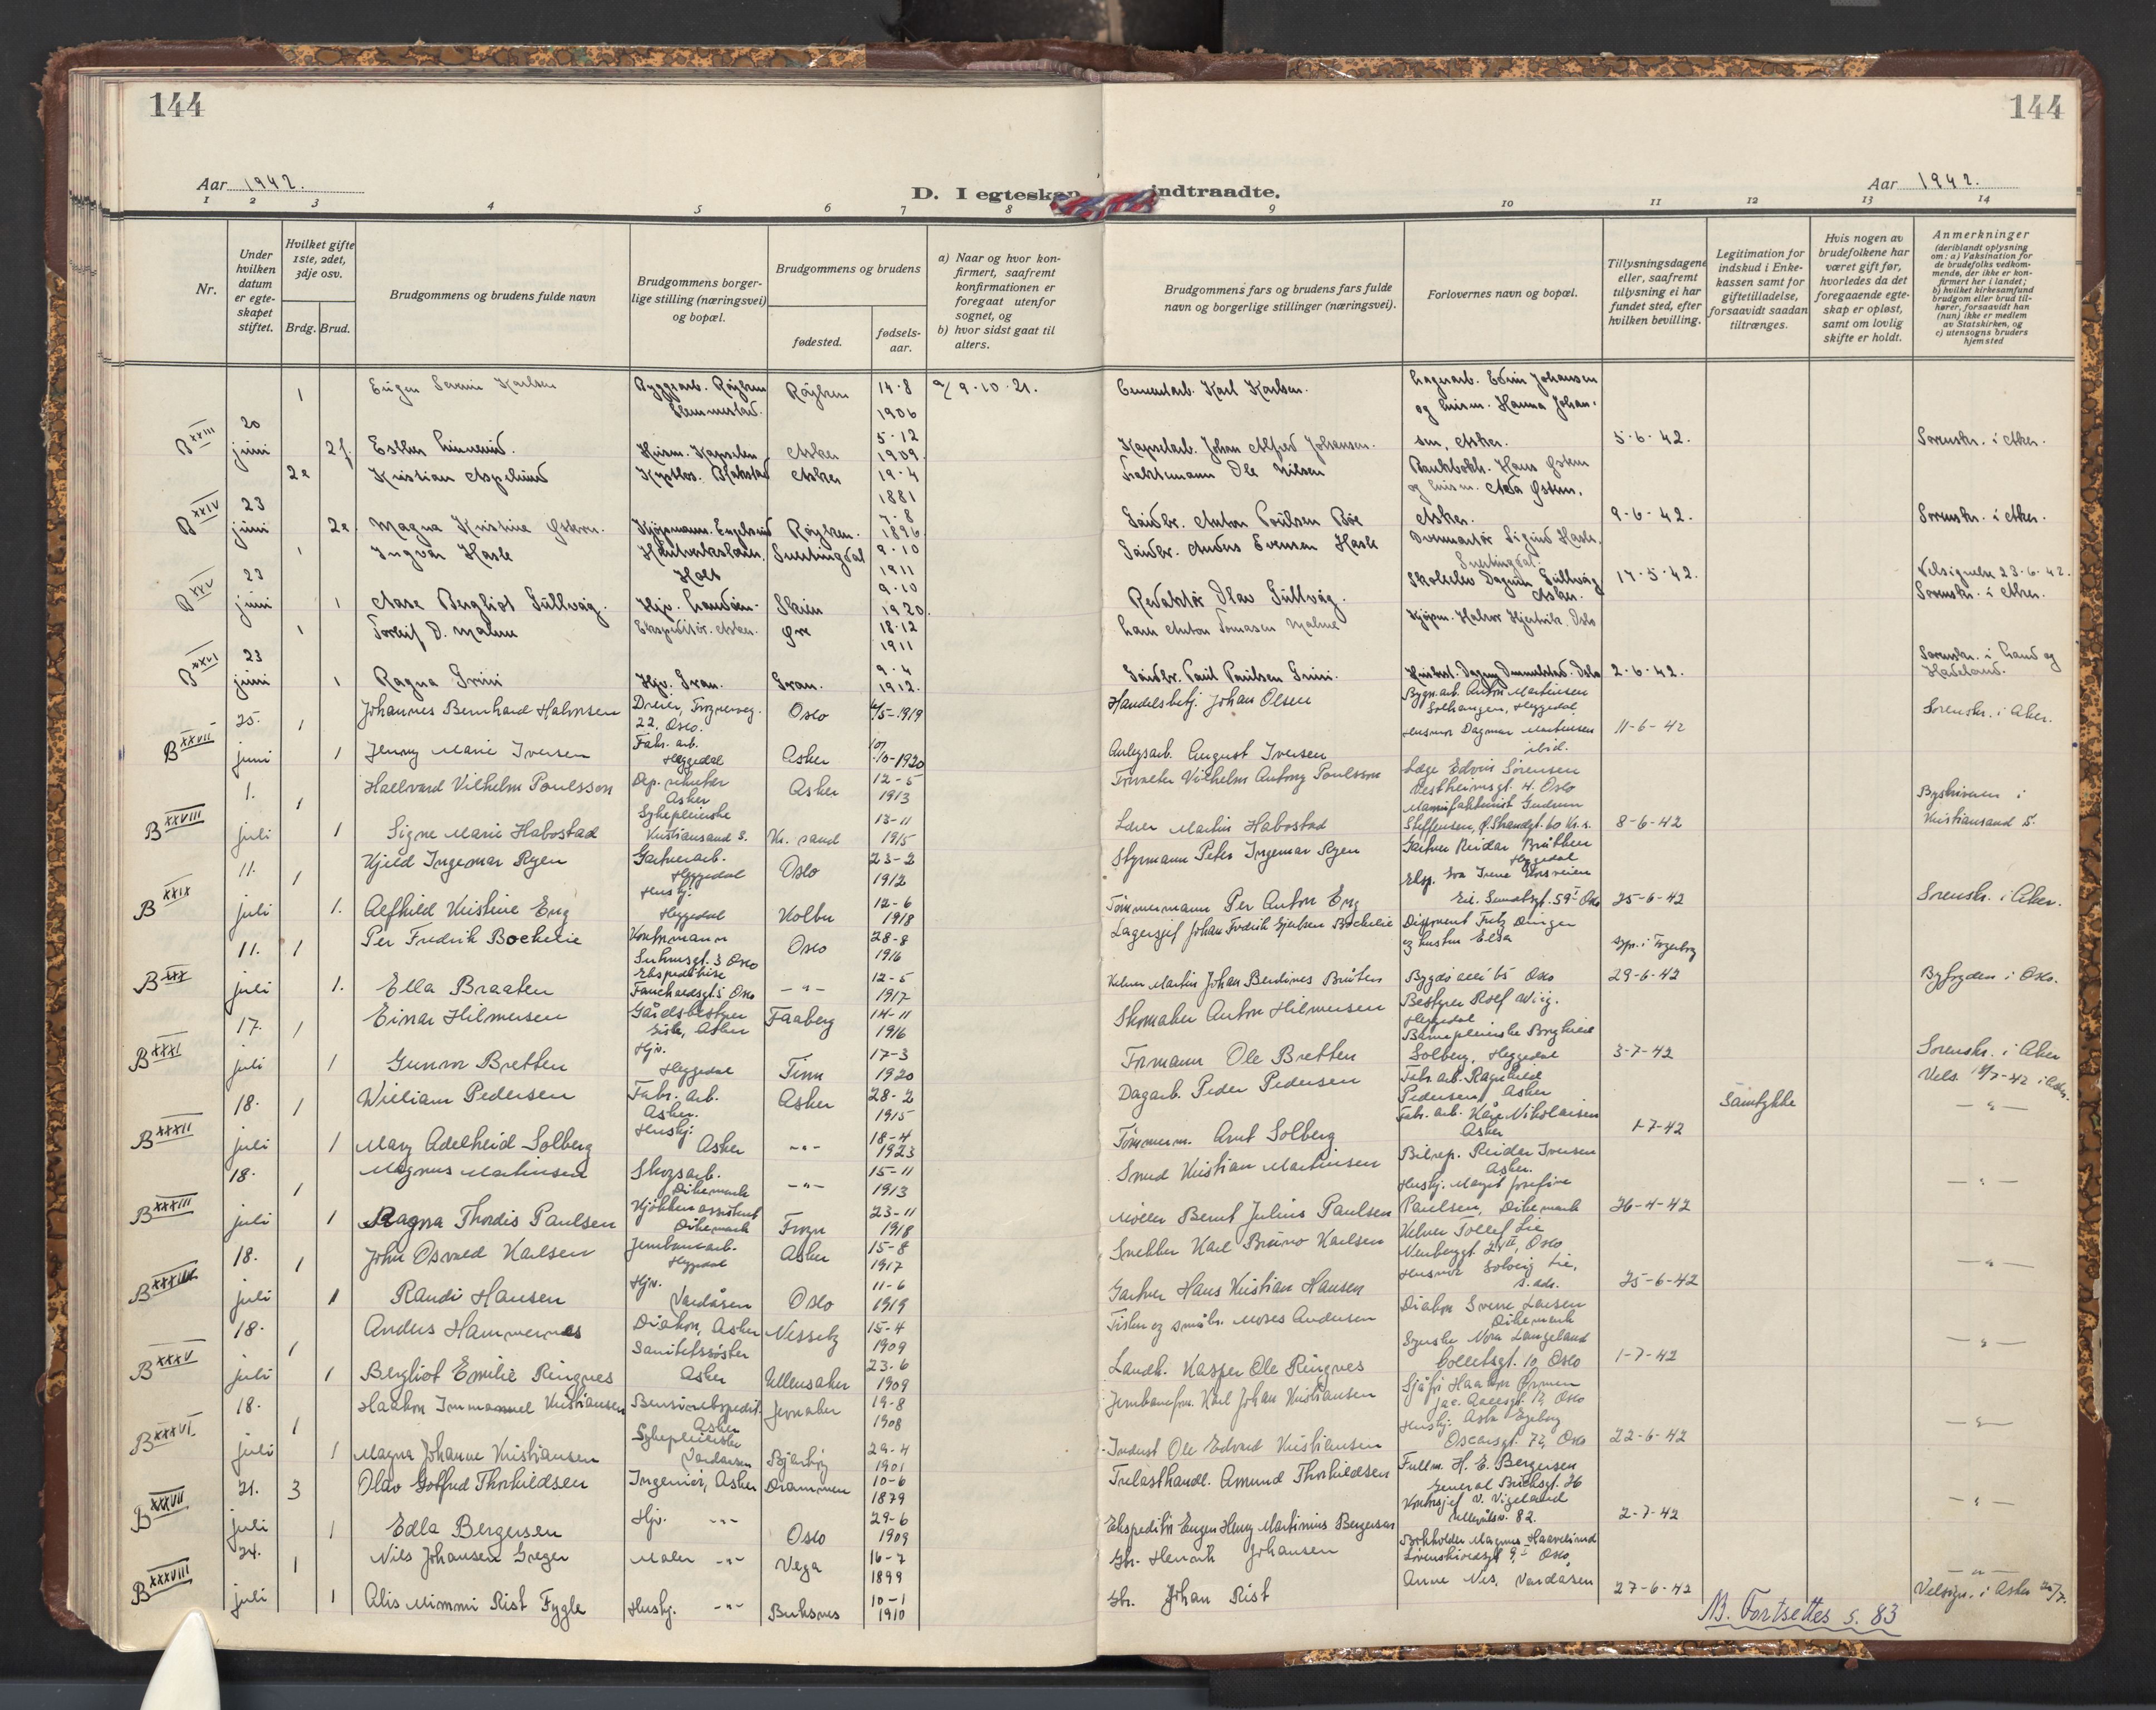 144
144
Aar 1942.
D. I egteskap indtraadte.
Aar 1942.
1 2 3 4 5 6 7 8 9 10 11 12 13 14
Nr.
Under hvilken datum er egte-skapet stiftet.
Hvilket gifte 1ste, 2det, 3dje osv.
Brdg. Brud.
Brudgommens og brudens fulde navn
Brudgommens borger-lige stilling (næringsvei) og bopæl.
Brudgommens og brudens
fødested.
fødsels-aar.
a) Naar og hvor kon-firmert, saafremt konfirmationen er foregaat utenfor sognet, og
b) hvor sidst gaat til alters.
Brudgommens fars og brudens fars fulde navn og borgerlige stillinger (næringsvei).
Forlovernes navn og bopæl.
Tillysningsdagene eller, saafremt tillysning ei har fundet sted, efter hvilken bevilling.
Legitimation for indskud i Enke-kassen samt for giftetilladelse, forsaavidt saadan tiltrænges.
Hvis nogen av brudefolkene har været gift før, hvorledes da det foregaaende egte-skap er opløst, samt om lovlig skifte er holdt.
Anmerkninger (deriblandt oplysning om: a) Vaksination for de brudefolks vedkom-mende, der ikke er kon-firmert her i landet; b) hvilket kirkesamfund brudgom eller brud til-hører, forsaavidt han (hun) ikke er medlem av Statskirken, og c) utensogns bruders hjemsted
1 Eugen Severin Karlsen Røyken 14-8 1906 a/ 9-10-21. Cementarb. Karl Karlsen. Lagerarb. Edvin Johansen og husm. Hanna Johan-
B XXIII 20 juni 2f. Esther Asker 5-12 1909 Kapselarb. Johan Alfred Johansen. sen, Asker. 5-6-42. Sorenskr. i Aker.
2e Kristian Aspelund Asker 19-4 1881 Ole Nilsen Bankbokh. Hans Østern
B XXIV 23 juni 2e Magna Kristine Østern. Kjøpmann. Røyken. 7-8 1896 Gårdbr. Anton Poulsen Bøe Asker. 9-6-42. Sorenskr. i Aker.
1 Ingvar Hasle Snertingdal 9-10 1911 Gårdbr. Anders Evensen Hasle Snertingdal.
B XXV 23 juni 1 Aase Bergliot Gullvåg. Skien 9-10 1920. Redaktør Olav Gullvåg. Dagrun Gullvåg Asker. 17-5-42. Velsignelse 23-6-42. Sorenskr. i Aker.
1 Torleif D. Malme Ekspeditør. Asker. 18-12 1911 Anton Tomasen Malme Kjøpm. Halvor Oslo
B XXVI 23 juni 1 Ragna Grini Hjv. Gran. Gran. 9-4 1912. Gårdbr. Paul Paulsen Grini. Oslo 2-6-42. Sorenskr. i Land og Hadeland.
25. 1 Johannes Bernhard Halvorsen Dreier, Trognerveg. 22, Oslo. Oslo 4/5-1919 Handelsbetj. Johan Olsen Bygn.arb. Anton Martinsen Solhaugen, Heggedal. Sorenskr. i Aker.
B XXVII juni 1 Jenny Marie Iversen Fabr. arb. Heggedal Asker 10/10-1920 Anlegsarb. August Iversen Husmor Dagmar Martinsen ibid. 11-6-42
1. 1 Hallvard Vilhelm Poulsson Dep. sekretær Asker Asker 12-5 1913 Vilhelm Antony Poulsson Læge Edvin Sørensen Vestheimsgt. 4. Oslo Byskriveren i
B XXVIII juli 1 Signe Marie Habostad Sykepleierske Kristiansand S. Kr. sand 13-11 1915 Lærer Martin Habostad 8-6-42 Kristiansand S.
11. 1 Kjeld Ingemar Ryen Gartnerarb. Heggedal Oslo 23-2 1912 Styrmann Peter Ingemar Ryen Gartner Reidar Heggedal
B XXIX juli 1. Alfhild Kristine Eng Husbj. Heggedal Kolbu 12-6 1918 Tømmermann Per Anton Eng Eil. Sundtsgt. 59 I Oslo 25-6-42 Sorenskr. i Aker.
11. 1 Per Fredrik Bockelie Kontormann Suhmsgt. 3 Oslo Oslo 28-8 1916 Lagersjef Johan Fredrik Gjertsen Bockelie Disponent Fritz og hustru Elsa
B XXX juli 1. Ella Braaten Ekspeditrise Fauchaldsgt. 5 Oslo -"- 12-5 1917 Kelner Martin Johan Bygdø allé 65 Oslo 29-6-42 Byfogden i Oslo.
17. 1 Einar Hilmersen Gårdsbestyrer Asker Faaberg 14-11 1916 Skomaker Anton Hilmersen Bestyrer Rolf Wiig. Heggedal
B XXXI juli 1 Gunvor Bretten Hjv. Heggedal Tinn 17-3 1920 Formann Ole Bretten Barnepleierske Borghild Solberg, Heggedal 3-7-42 Sorenskr. i Aker
18. 1 William Pedersen Fabr. arb. Asker. Asker 28-2 1915 Dagarb. Peder Pedersen Fabr. arb. Ragnhild Pedersen, Asker Samtykke -"-
B XXXII juli 1 Mary Adelheid Solberg Husbj. Asker -"- 18-4 1923 Tømmerm. Arnt Solberg Fabr. arb. Kåre Nikolaisen Asker 1-7-42
18. 1 Magnus Martinsen Skogsarb. Dikemark -"- 15-11 1913 Smed Kristian Martinsen Bilrep. Reidar Iversen Asker. -"-
B XXXIII juli 1 Ragna Thordis Paulsen Kjøkkenassistent Dikemark Frogn 23-11 1918 Møller Bernt Julius Paulsen Husbj. Margit Josefine Paulsen, Dikemark 26-4-42
18. 1 John Osvald Karlsen Jernbanearb. Heggedal Asker 15-8 1917 Snekker Karl Bruno Karlsen Kelner Tollef Lie Oslo -"-
B XXXIV juli 1 Randi Hansen Hjv. Vardåsen Oslo 11-6 1919 Gartner Hans Kristian Hansen Husmor Solveig Lie, s. ads. 25-6-42
18. 1 Anders Hammernes Diakon, Asker Nesseby 15-4 1909 Fisker og småbr. Moses Andersen Diakon Sverre Larsen Dikemark -"-
B XXXV juli 1 Bergliot Emilie Ringnes Sanitetssøster Asker Ullensaker 23-6 1909 Landh. Kasper Ole Ringnes Nora Langeland Collettsgt. 10, Oslo 1-7-42
18. 1 Haakon Immanuel Kristiansen Bensinekspedit. Asker Jevnaker 19-8 1908 Jernbaneform. Karl Johan Kristiansen Sjåfør Haakon Oslo -"-
B XXXVI juli 1 Magna Johanne Kristiansen Sykepleierske Vardaasen 29-4 1901 Industr. Ole Edvard Kristiansen Husbj. Asta Engeborg Oscarsgt. 72, Oslo 22-6-42
21. 3 Olav Gotfred Thorkildsen Ingeniør, Asker Drammen 10-6 1879 Trelasthandl. Amund Thorkildsen Fullm. H. E. Bergersen General Birchsgt. 26 -"-
B XXXVII juli 1 Edla Bergersen Hjv. -"- Oslo 29-6 1909 Ekspeditør Eugen Henry Martinius Bergersen Kontorsjef V. Vigeland Ullevålsv. 82. 2-7-42
24. 1 Nils Johansen Greger Maler -"- Vega 16-7 1899 Gbr. Henrik Johansen Bokholder Magnus Haavelsrud Løvenskioldsgt 9, I Oslo, -"-
B XXXVIII juli 1 Alis Mimmi Rist Fygle Husbj. -"- Buksnes 10-1 1910 Gbr. Johan Rist Anne Nes, Vardåsen 27-6-42 Velsign. i Asker
NB. Fortsettes s. 83